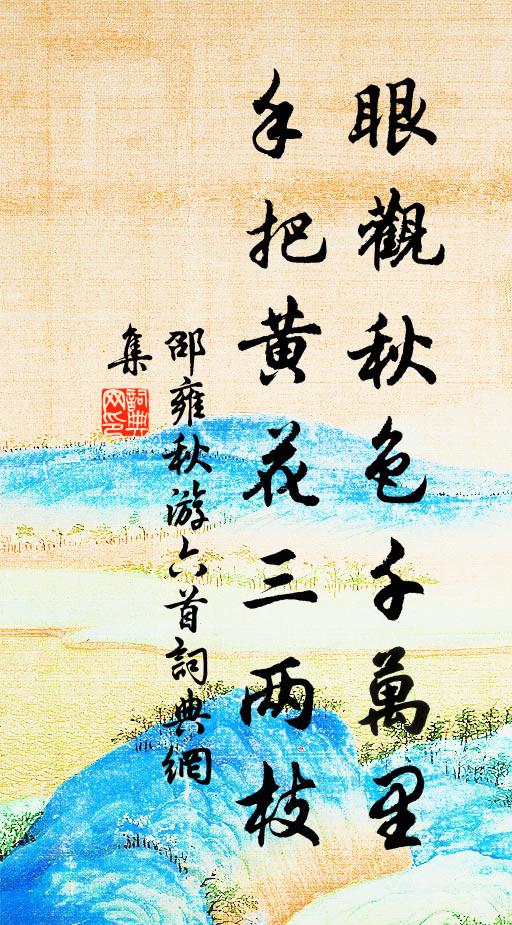 眼觀秋色千萬里
手把黄花三两枝
邵雍秋游六首詞典網
集
詞典
网印